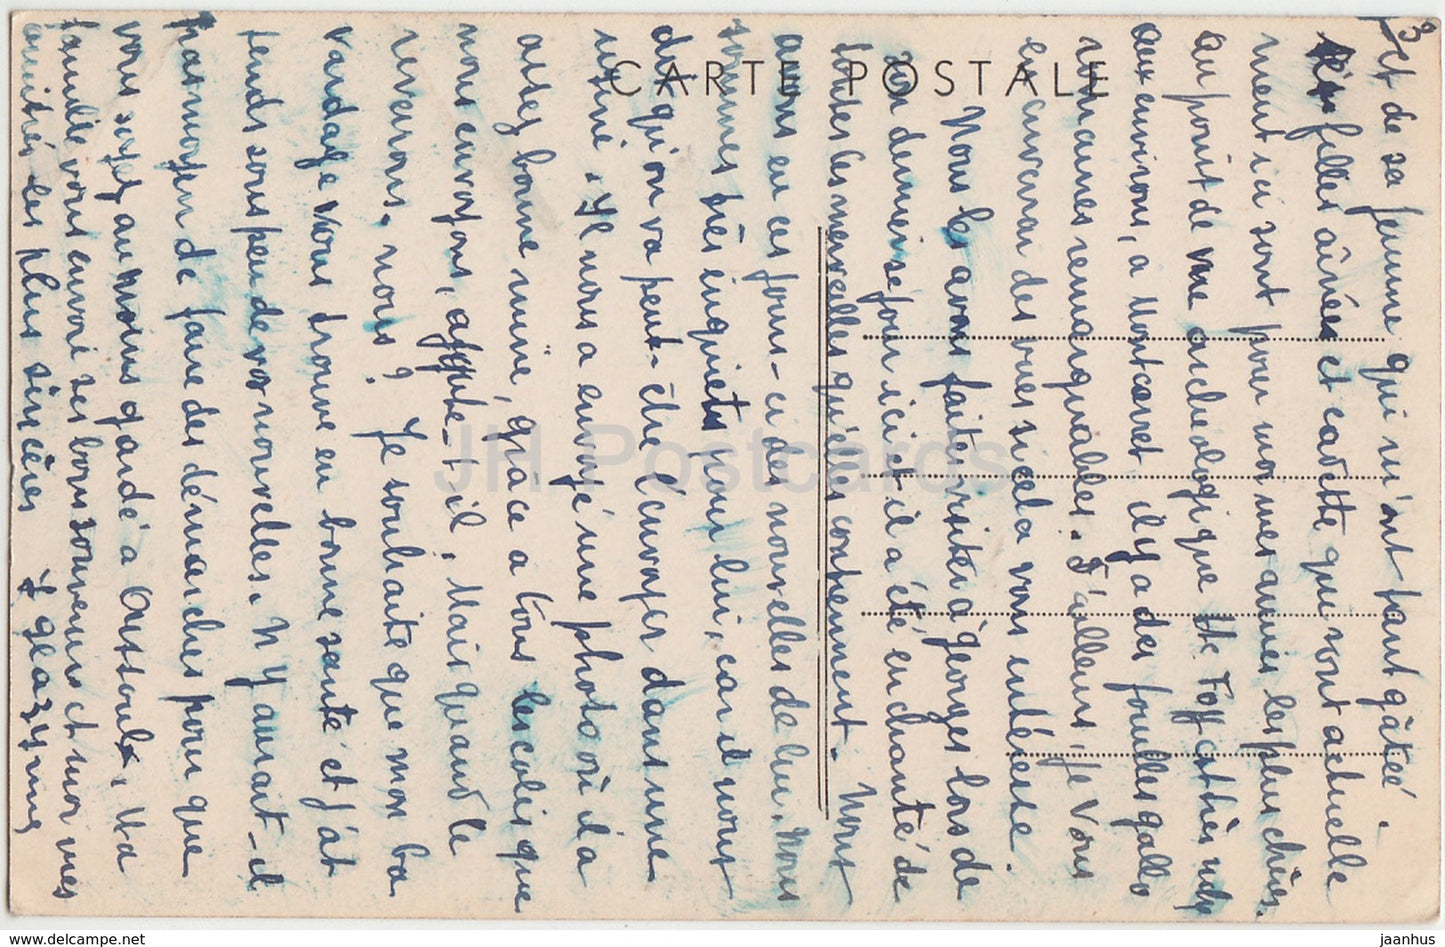 3/ et de sa femme qui m'ont tant gâtée.
Les filles aînées et cadette qui sont actuelle
ment ici sont pour moi mes amies les plus chères.
au point de vue archéologique Ste Foy est très riche
aux environs, à Montcaret il y a des fouilles gallo
romaines remarquables. D'ailleurs, je vous
enverrai des vues si cela vous intéresse
Nous les avons fait visiter à Georges lors de
son dernier séjour ici et il a été enchanté de
toutes les merveilles qu'elles contiennent. Nous
avons eu ces jours-ci des nouvelles de lui. Nous
sommes très inquiets pour lui, car il nous
dit qu'on va peut-être l'envoyer dans une
usine. Il nous a envoyé une photo où il a
assez bonne mine, grâce à tous les colis que
nous envoyons, ajoute-t-il, Mais quand le
reverrons-nous? Je souhaite que mon ba
vardage vous trouve en bonne santé et j'at
tends sous peu de vos nouvelles. N'y aurait-il
pas moyen de faire des démarches pour que
vous soyez au moins gardé à Ma
famille vous envoie ses bons souvenirs et moi mes
amitiés les plus sincères
CARTE POSTALE
JH Postcards
jaanhus — https://www.jaanhus.com/